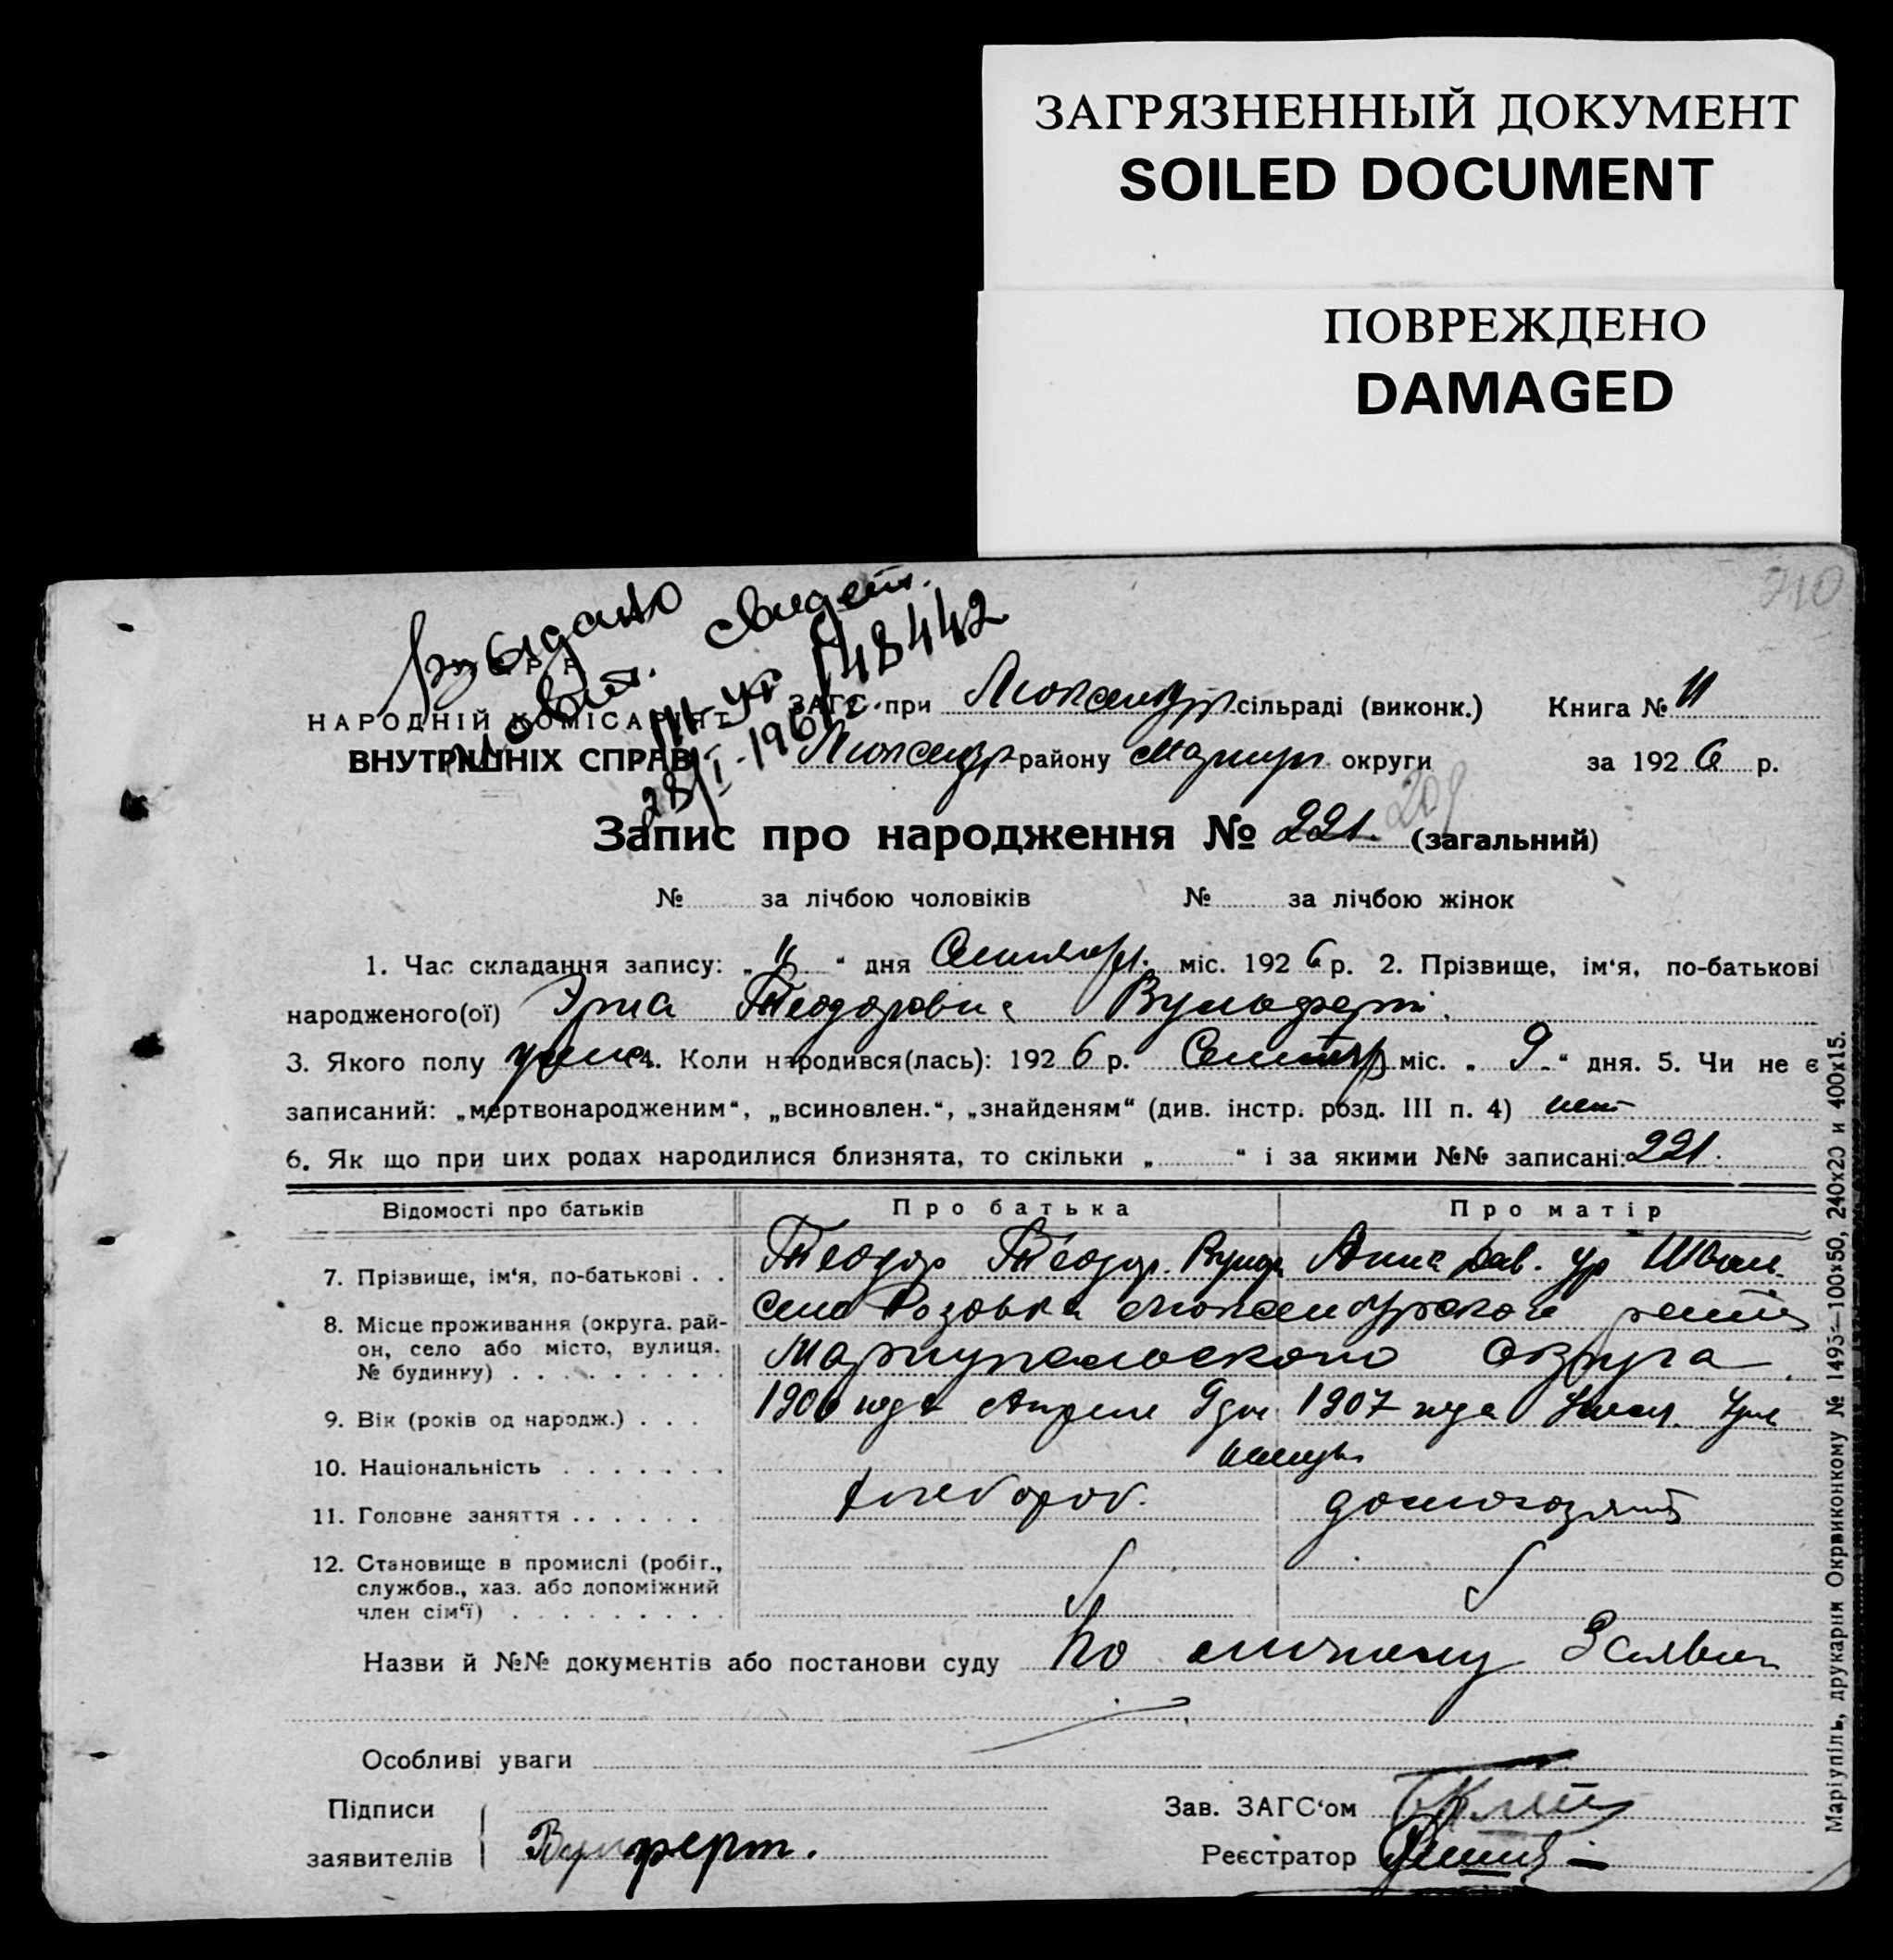 ЗАГРЯЗНЕННЫЙ ДОКУМЕНТ
SOILED DOCUMENT
ПОВРЕЖДЕНО
DAMAGED
210
выдано
повт. свидет.
148442
28/I-1961г.
НАРОДНІЙ КОМІСАРІЯТ
ВНУТРІШНІХ СПРАВ
ЗАГС при Люксембург сільраді (виконк.) Книга № 11
Люксембр району Мариуп округи за 1926 р.
209
Запис про народження № 221. (загальний)
№ за лічбою чоловіків № за лічбою жінок
1. Час складання запису: „11“ дня Сентября міс. 1926 р. 2. Прізвище, ім‘я, по-батькові
народженого(ої) Эрна Теодоровна Вульферт.
3. Якого полу женс 4. Коли народився(лась): 1926 р. Сентябр міс. „9“ дня. 5. Чи не є
записаний: „мертвонародженим“, „всиновлен.“, „знайденям“ (див. інстр. розд. III п. 4) нет
6. Як що при цих родах народилися близнята, то скільки „ “ і за якими №№ записані: 221.
Відомості про батьків Про батька Про матір
7. Прізвище, ім‘я, по-батькові . . Теодор Теодор. Вульф Анна Дав. ур Шван
8. Місце проживання (округа, рай-он, село або місто, вулиця, № будинку) село Розовка Люксембургского
Мариупольского Округа
9. Вік (років од народж.) . . . 1906 года Апреля 9 дня 1907 года
10. Національність немцы
11. Головне заняття хлебороб. домохозяйка
12. Становище в промислі (робіг., службов., хаз. або допоміжний член сім‘ї)
Назви й №№ документів або постанови суду По личному Заявлен
Особливі уваги
Підписи заявителів Вульферт.
Зав. ЗАГС‘ом
Реєстратор
Маріупіль, друкарня Окрвиконкому № 1495—100×50, 240×20 и 400×15.